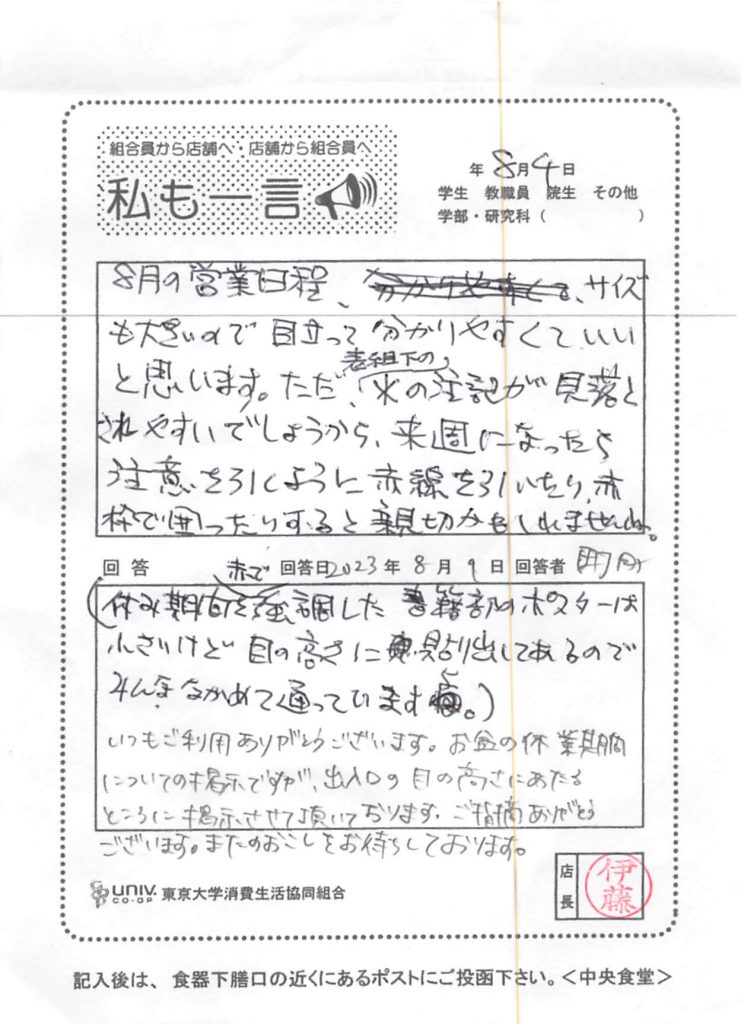 組合員から店舗へ・店舗から組合員へ
私も一言
年 8月4日
学生 教職員 院生 その他
学部・研究科（ ）
8月の営業日程、サイズ
も大きいので目立って分かりやすくていい
と思います。ただ、表組下の
※の注記が見落と
されやすいでしょうから、来週になったら
注意を引くように赤線を引いたり、赤
枠で囲ったりすると親切かもしれませんね。
回答 回答日2023年8月9日 回答者
赤で
(休み期間を強調した書籍部のポスターは
小さいけど目の高さに貼り出してあるので
みんなながめて通っていますよ。)
いつもご利用ありがとうございます。お盆の休業期間
についての掲示ですが、出入口の目の高さにあたる
ところに掲示させて頂いております。ご指摘ありがとう
ございます。またのおこしをお待ちしております。
UNIV.
CO-OP
東京大学消費生活協同組合
店長
伊藤
記入後は、食器下膳口の近くにあるポストにご投函下さい。＜中央食堂＞